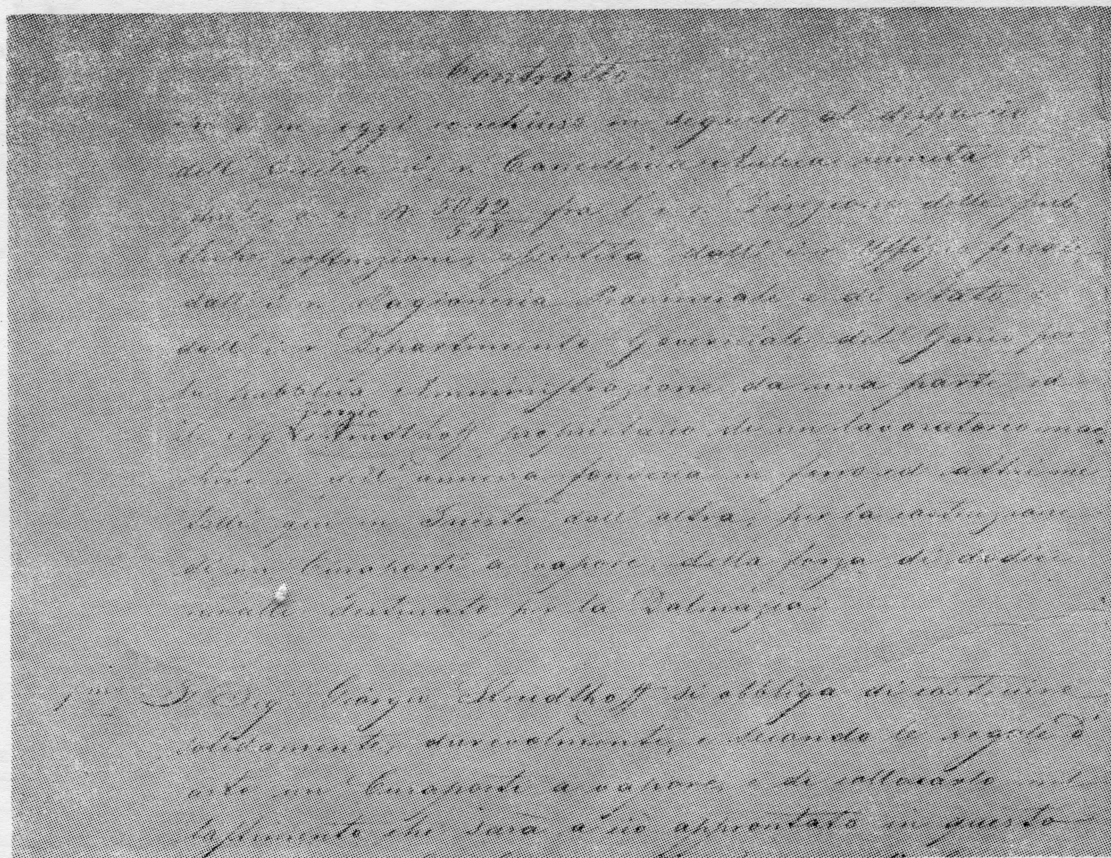 Contratto
oggi conchiuso in seguito al dispaccio
dell' Eccelsa i. r. Cancelleria Aulica riunita 5
N. 5042/548 fra l' i. r. Direzione delle pub
bliche costruzioni, assistita dall' i. r. Uffizio fiscale
dall' i. r. Ragioneria Provinciale e di Stato e
dall' i. r. Dipartimento Governiale del Genio per
la pubblica Amministrazione da una parte, ed
il Sig. Giorgio Strudthoff proprietario di un lavoratorio mac
chine e dell' annessa fonderia in ferro ed altri me
talli qui in Trieste dall' altra, per la costruzione
di un Curaporti a vapore, della forza di dodici
cavalli destinato per la Dalmazia.
1mo Il Sig. Giorgio Strudthoff si obbliga di costruire
solidamente, durevolmente, e secondo le regole d'
arte un Curaporti a vapore, e di collocarlo nel
bastimento che sarà a ciò approntato in questo